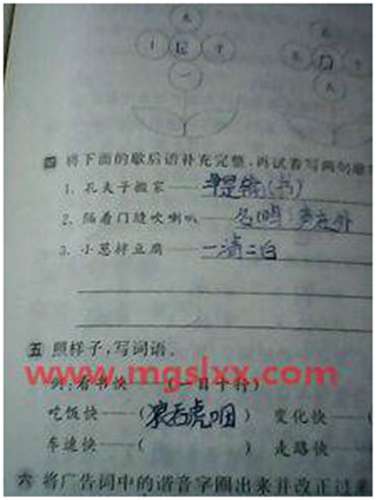 四 将下面的歇后语补充完整,再试着写两句歇
1. 孔夫子搬家——尽是输(书)
2. 隔着门缝吹喇叭——名鸣声在外
3. 小葱拌豆腐——一清二白
五 照样子,写词语。
www.mgslxx.com
例:看书快——(一目十行)
吃饭快——(狼吞虎咽) 变化快——
车速快——( ) 走路快——
六 将广告词中的谐音字圈出来并改正过来